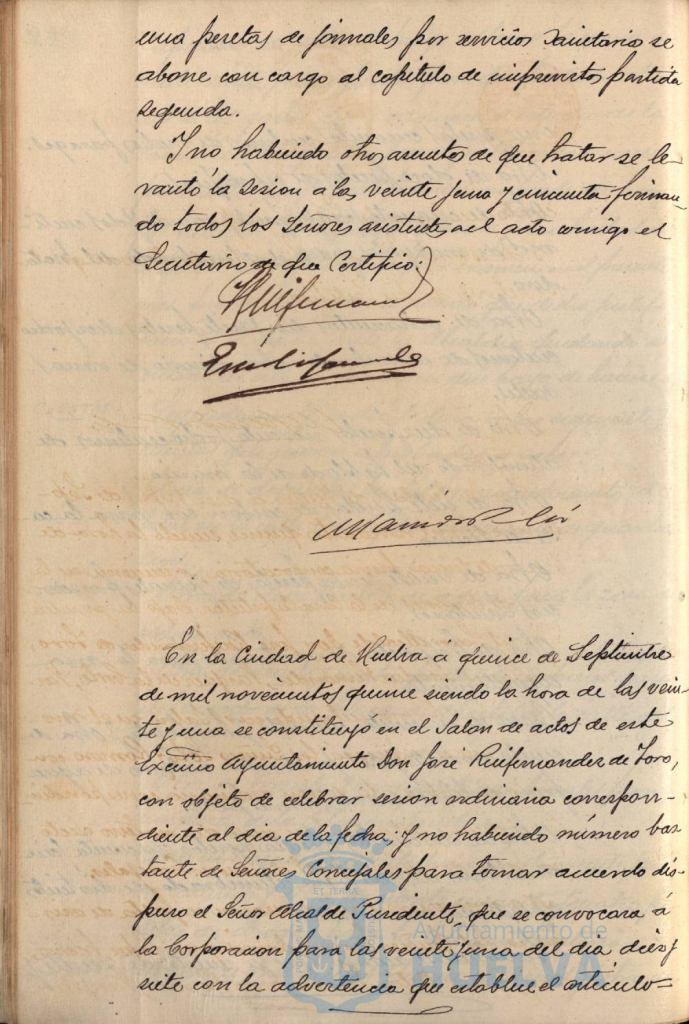 una pesetas de jornales por servicios Sanitarios se
abone con cargo al capitulo de imprevistos partida
segunda.
Y no habiendo otros asuntos de que tratar se le-
vantó la sesion á las veinte y una y cincuenta firman-
do todos los Señores asistentes al acto comigo el
Secretario de que Certifico:
En la Ciudad de Huelva á quince de Septiembre
de mil novecientos quince siendo la hora de las vein-
te y una se constituyó en el Salon de actos de este
Excmo Ayuntamiento Don José Ruifernandez de Toro,
con objeto de celebrar sesion ordinaria correspon-
diente al dia de la fecha; y no habiendo número bas-
tante de Señores Concejales para tomar acuerdo dis-
puso el Señor Alcalde Presidente, que se convocara á
la Corporacion para las veinte y una del dia diez y
siete con la advertencia que establece el articulo=
Ayuntamiento de
HUELVA